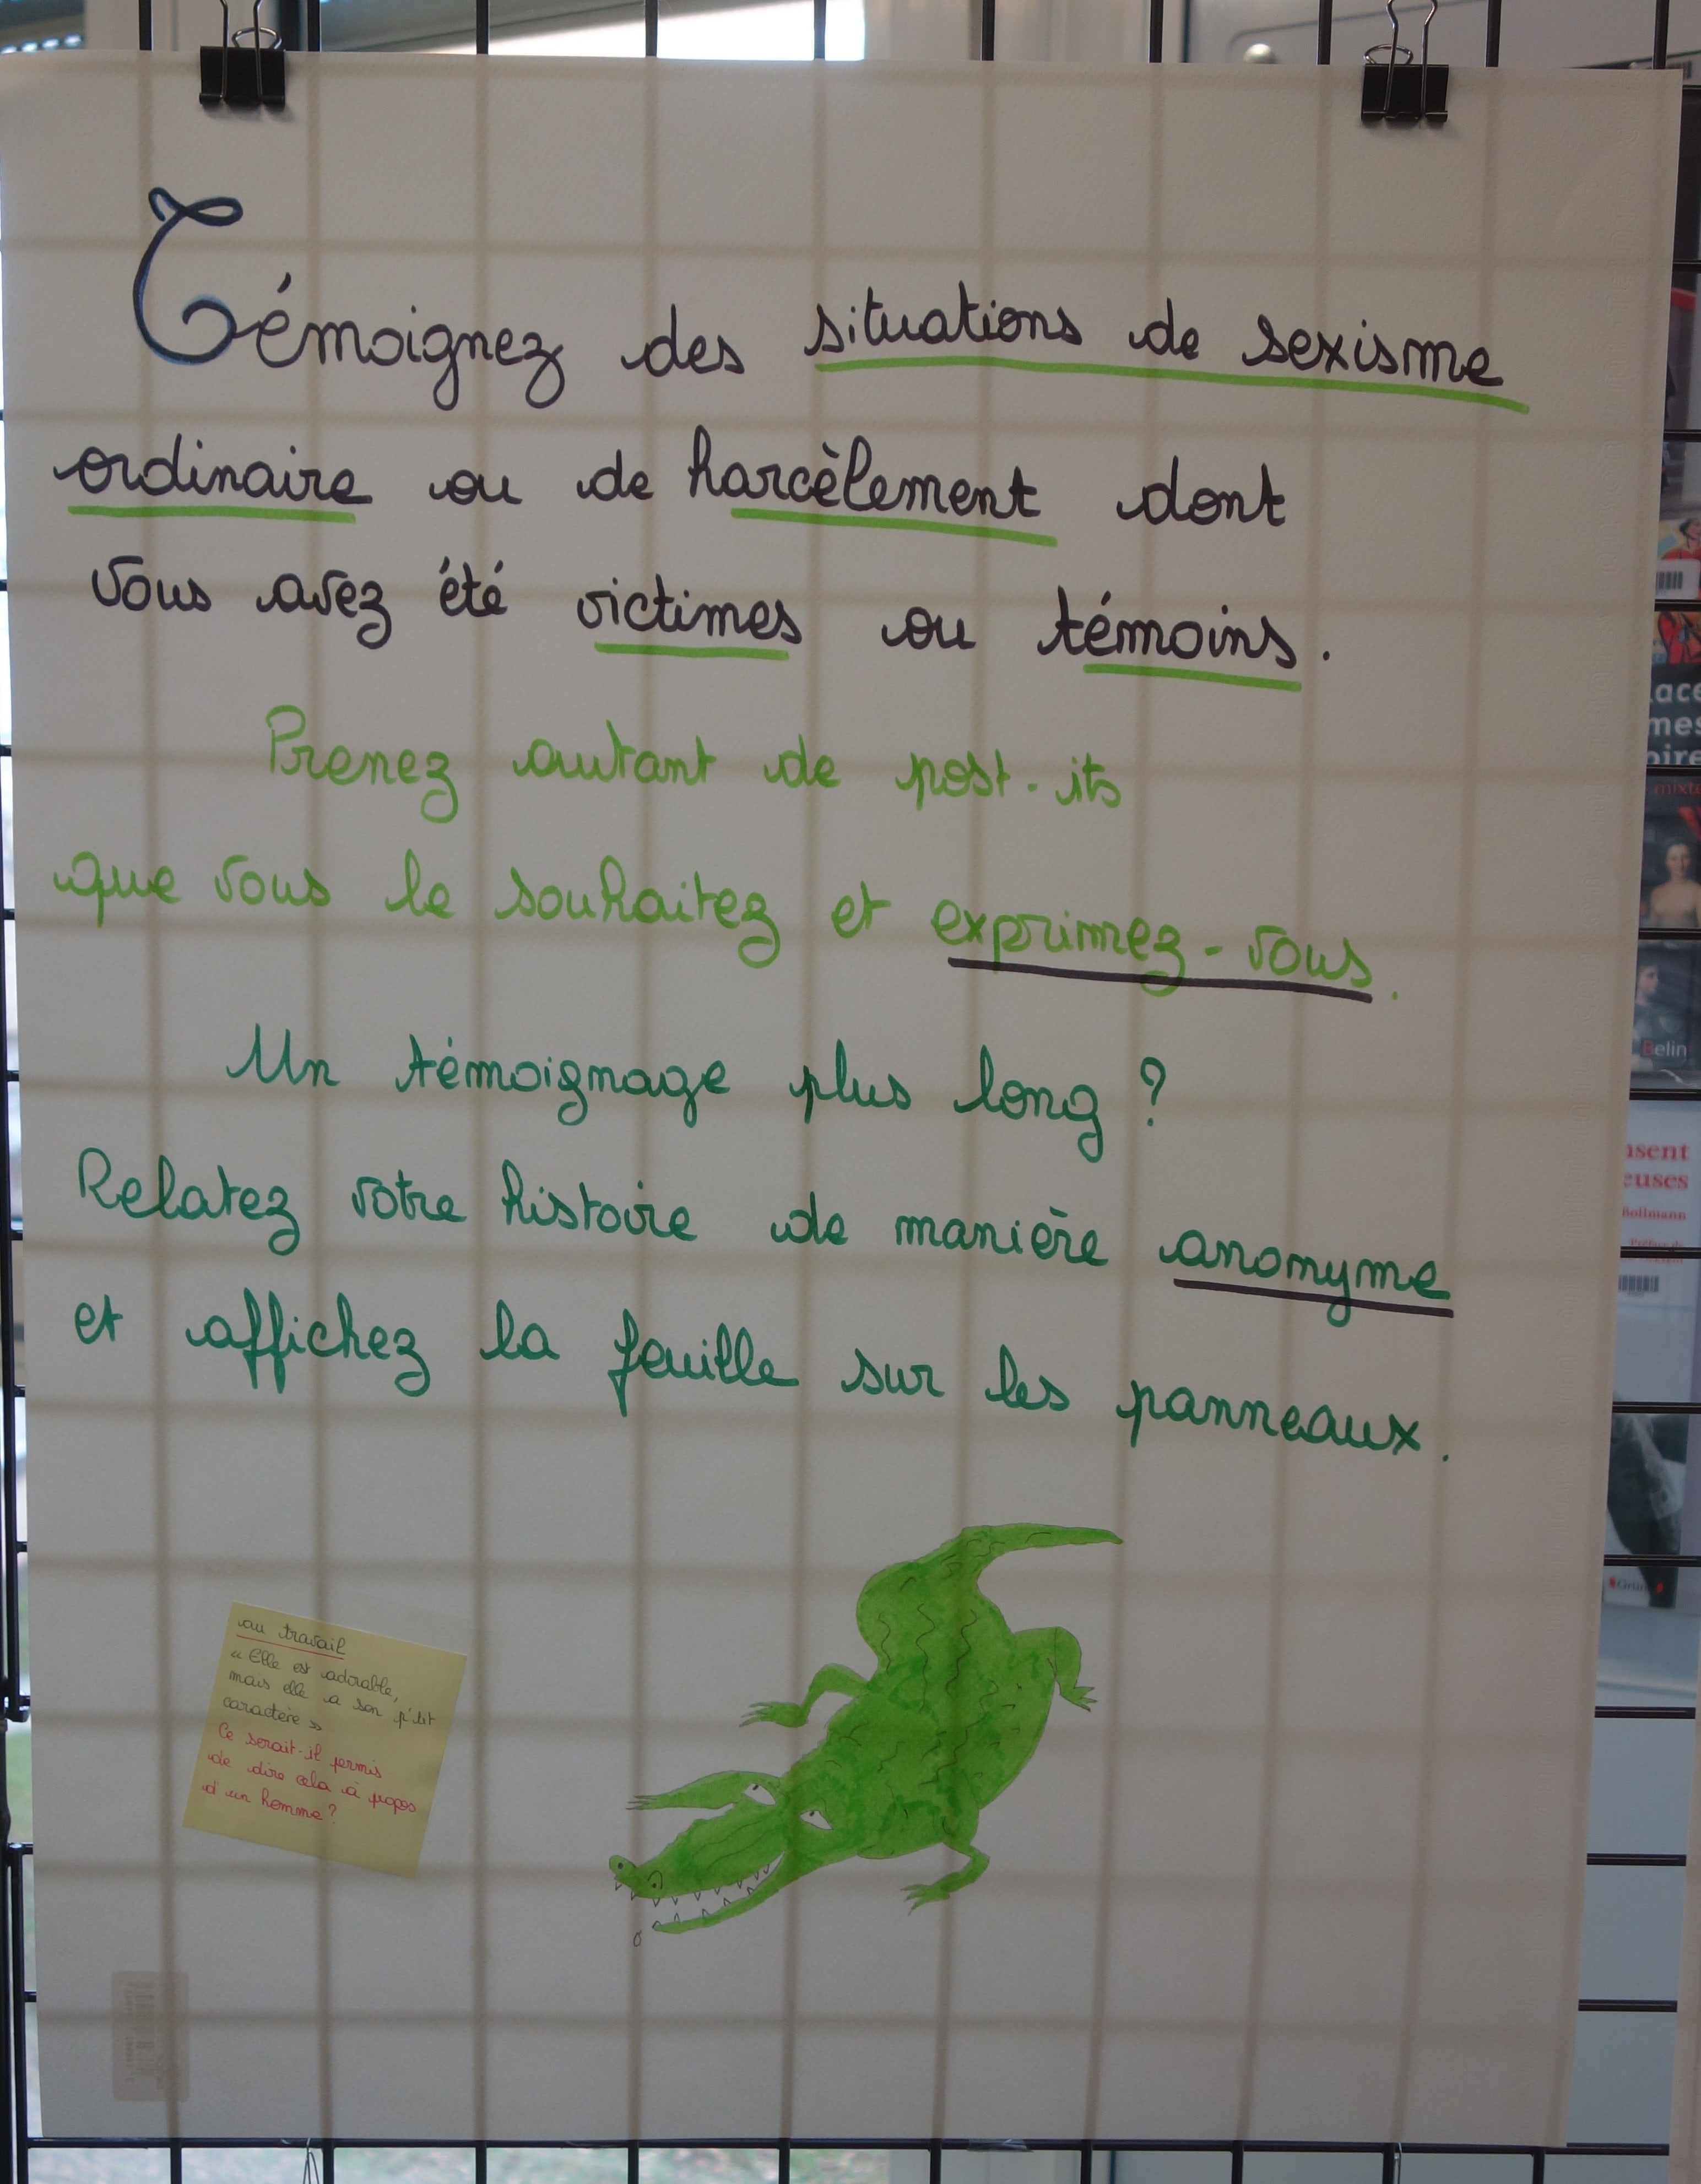 Témoignez des situations de sexisme
ordinaire ou de harcèlement dont
vous avez été victimes ou témoins.
Prenez autant de post-its
que vous le souhaitez et exprimez-vous.
Un témoignage plus long ?
Relatez votre histoire de manière anonyme
et affichez la feuille sur les panneaux.
au travail
"Elle est adorable,
mais elle a son p'tit
caractère"
Ce serait-il permis
de dire cela à propos
d'un homme ?
Belin
Bollmann
Gründ